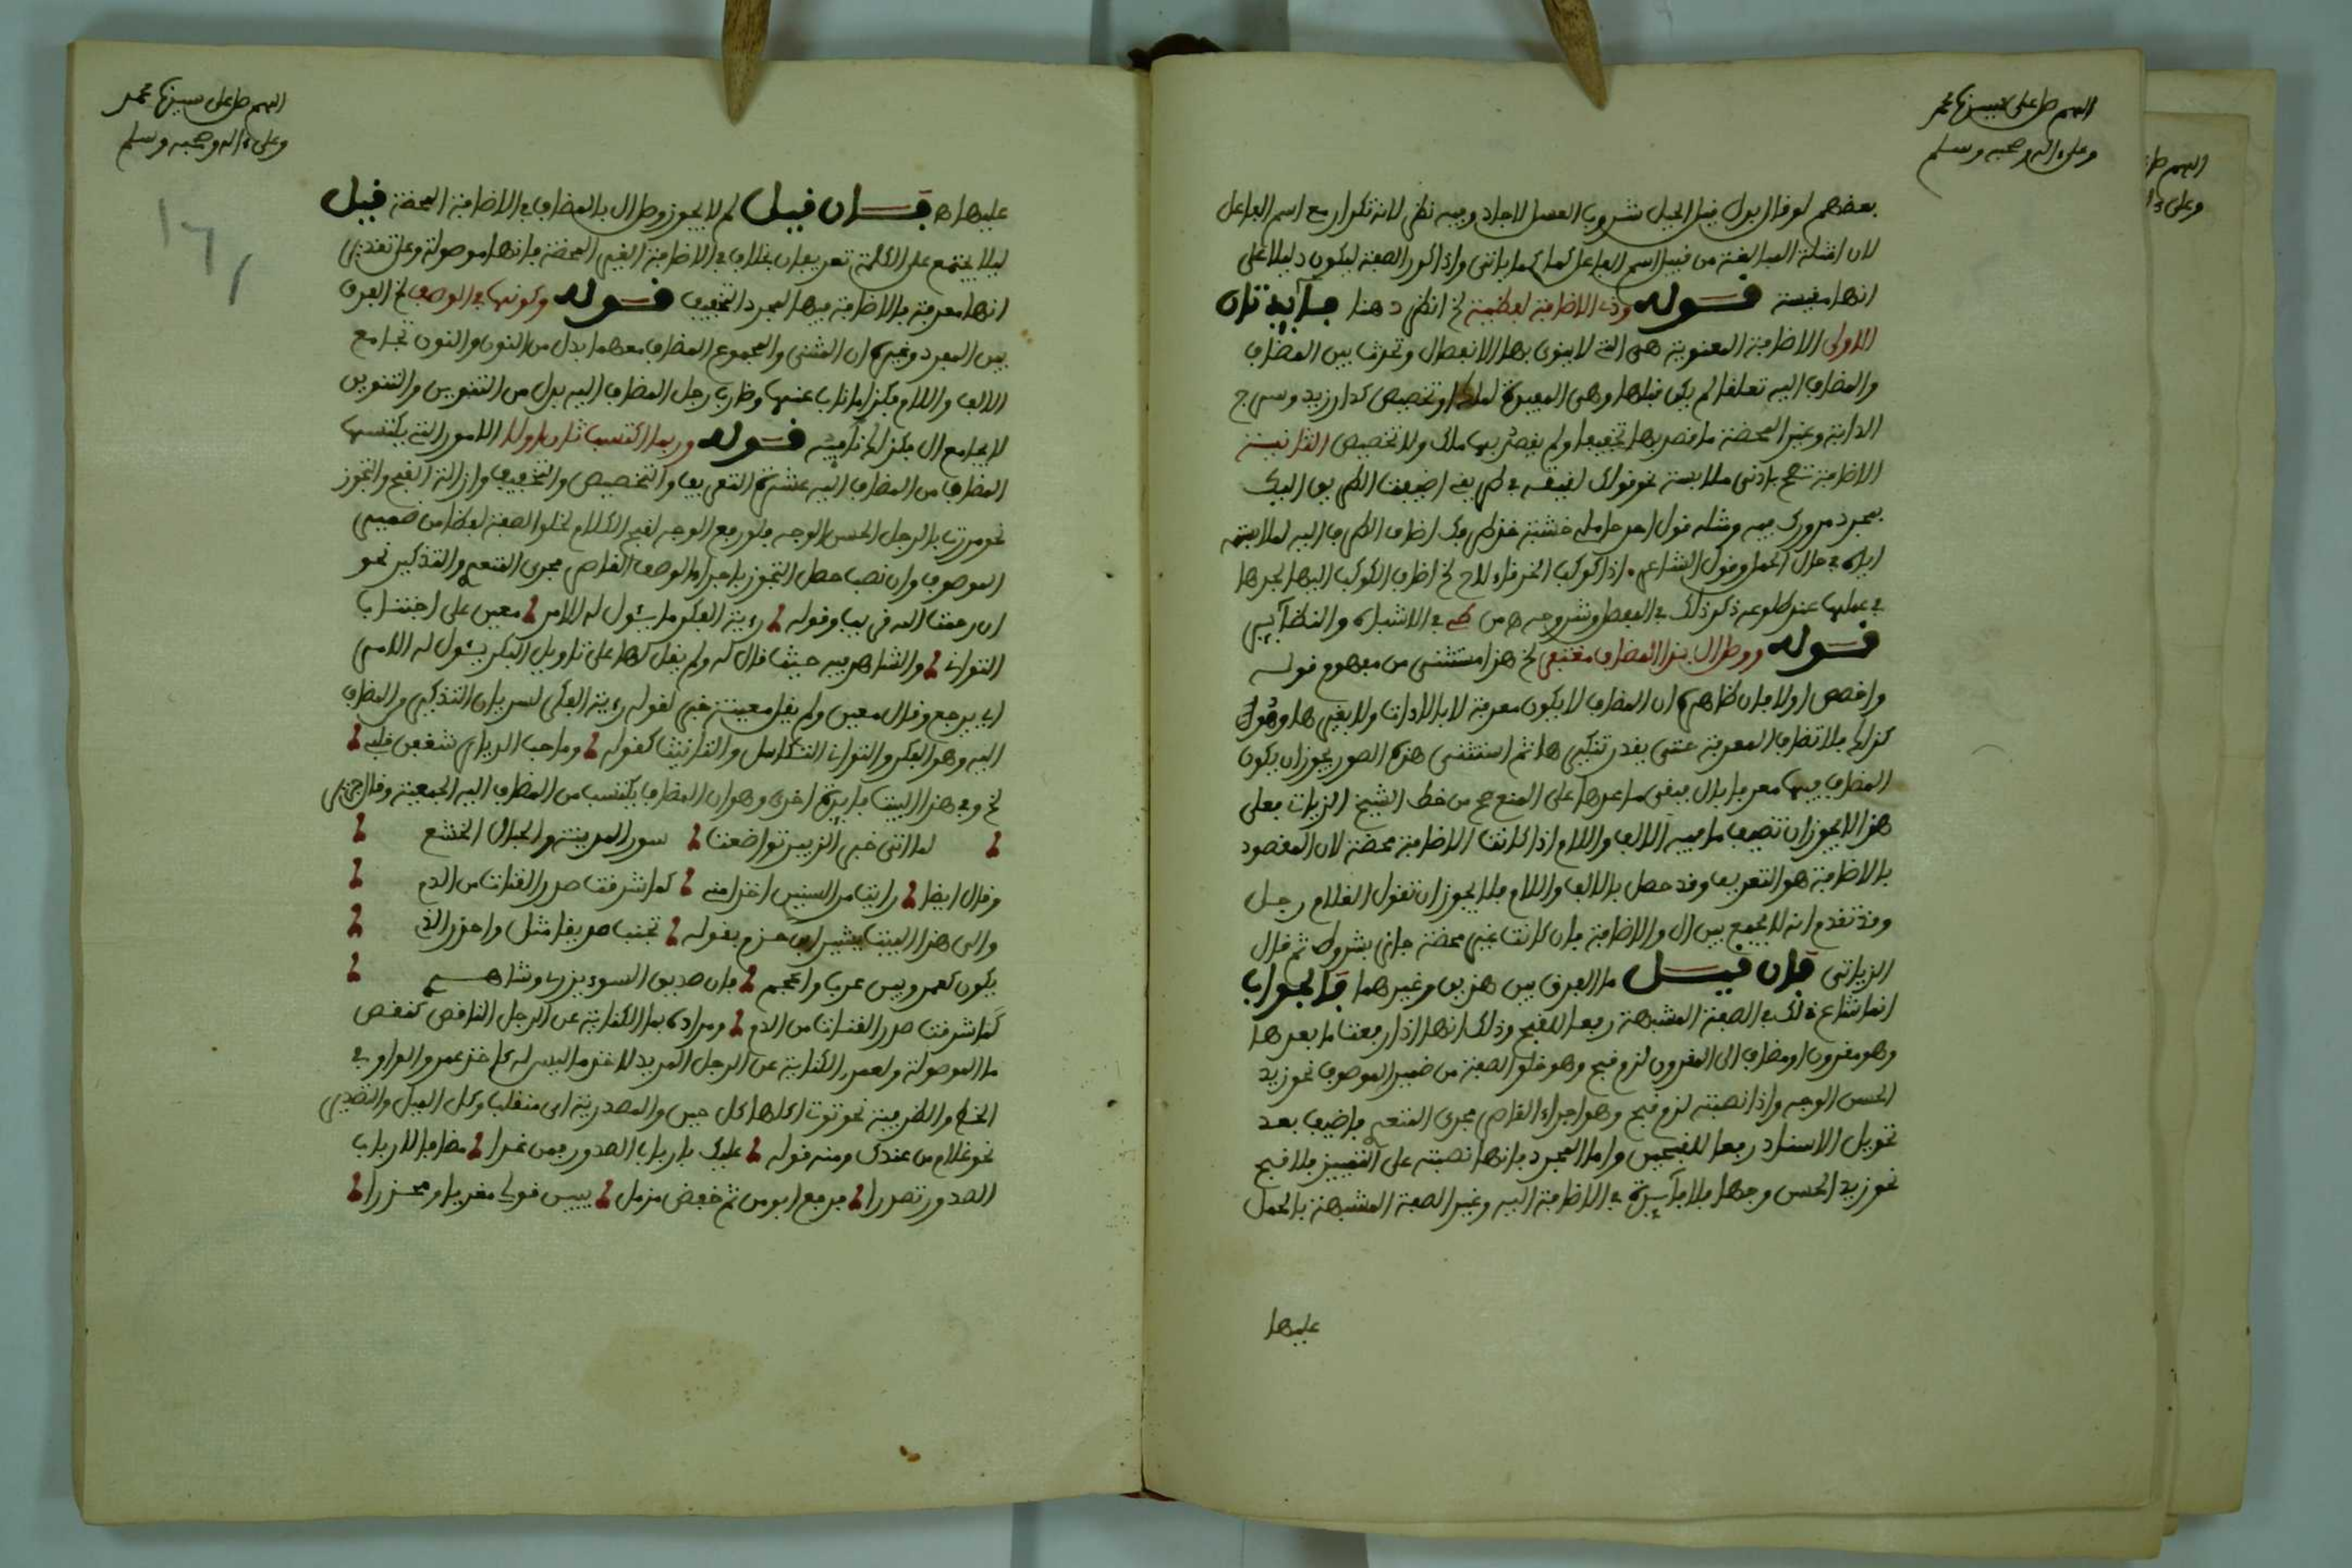 اللهم صل على سيدنا محمد
وعلى ءاله وصحبه وسلم
بعضهم لوقال بدل قبل الجبل شروب العسل لاجاد وفيه نظر لانه تكرار مع اسم الفاعل
لان امثلة المبالغة من قبيل اسم الفاعل كما ياتى وانما كرر الصفة ليكون دليلا على
انها مقيسة قوله وذى الاضافة لفظية لخ انظر هنا فايدتان
الاولى الاضافة المعنوية هى التى لا ينوى بها الانفصال وتحدث بين المضاف
والمضاف اليه تعلقا لم يكن قبلها وهى المفيدة لملك او تخصيص كدار زيد وسرج
الدابة وغير المحضة ما قصد بها تخفيفا ولم يقصد بها ملك ولا تخصيص الثانية
الاضافة تصح بادنى ملابسة نحو قولك لقيته فى طريقى اضيفت الطريق اليك
بمجرد مرورك فيه ومثله قول احد حاملى خشبة خذ طرفك اضاف الطرف اليه لملابسته
اياه فى حال الحمل وقول الشاعر اذا كوكب الخرقاء لاح لخ اضاف الكوكب اليها لجدها
فى عملها عند طلوعه ذكر ذلك فى المفصل وشروحه من فى الاشباه والنظاير
قوله ووصل ال بذا المضاف مغتفر لخ هذا مستثنى من مفهوم قوله
واخصص اولا فان ظاهره ان المضاف لا يكون معرفة لا بالاداة ولا بغيرها وهو
كذلك فلا تضاف المعرفة حتى يقدر تنكيرها ثم استثنى هذه الصور يجوز ان يكون
المضاف فيها معرفا بال فبقى ما عداها على المنع صح من خط الشيخ الزيات فعلى
هذا لا يجوز ان تضيف ما فيه الالف واللام اذا كانت الاضافة محضة لان المقصود
بالاضافة هو التعريف وقد حصل بالالف واللام فلا يجوز ان تقول الغلام رجل
وقد تقدم انه لا يجمع بين ال والاضافة فان كانت غير محضة جاز بشروط ثم قال
الزياتى فان قيل ما الفرق بين هذين وغيرهما فالجواب
انما شاع ذلك فى الصفة المشبهة رفعا للقبح وذلك انها اذا رفعت ما بعدها
وهو مقرون او مضاف الى المقرون لزم قبح وهو خلو الصفة من ضمير الموصوف نحو زيد
الحسن الوجه واذا نصبته لزم قبح وهو اجراء القاصر مجرى المتعدى فاضيف بعد
تحويل الاسناد رفعا للقبحين واما المجرد فانها نصبته على التمييز فلا قبح
نحو زيد الحسن وجها فلا فايدة فى الاضافة اليه وغير الصفة المشبهة بالحمل
عليها
اللهم صل على سيدنا محمد
وعلى ءاله وصحبه وسلم
عليها فان قيل لم لا يجوز وصل ال بالمضاف فى الاضافة المحضة قيل
ليلا يجتمع على الكلمة تعريفان بخلاف فى الاضافة الغير المحضة فانها موصولة وعلى تقدير
انها معرفة فالاضافة فيها لمجرد التخفيف قوله وكونها فى الوصف لخ الفرق
بين المفرد وغيره ان المثنى والمجموع المضاف معهما بدل من النون والنون تجامع
الالف واللام فكذا ما ناب عنها وضارب رجل المضاف اليه بدل من التنوين والتنوين
لا يجامع ال فكذلك نائبه قوله وربما اكتسب ثان اولا الامور التى يكتسبها
المضاف من المضاف اليه عشرة التعريف والتخصيص والتخفيف وازالة القبح والتجوز
نحو مررت بالرجل الحسن الوجه فلو رفع الوجه لقبح الكلام لخلو الصفة لفظا من ضمير
الموصوف وان نصب حصل التجوز باجراء الوصف القاصر مجرى المتعدى والتذكير نحو
ان رحمت الله قريب وقوله رؤية الفكر ما يئول له الامر معين على اجتناب
التوانى والشاهد فيه حيث قال له ولم يقل لها على تاويل الفكر يئول له الامر
اى يرجع وقال معين ولم يقل معينة خبر لقوله رؤية الفكر لسريان التذكير والمضاف
اليه وهو الفكر والتوانى التكاسل والتانيث كقوله وما حب الديار شغفن قلبى
لخ وفى هذا البيت فايدة اخرى وهو ان المضاف يكتسب من المضاف اليه الجمعية وقال جرير
لما اتى خبر الزبير تواضعت سور المدينة والجبال الخشع
وقال ايضا رايت مر السنين اخذن منى كما شرقت صدر القناة من الدم
والى هذا البيت يشير ابن حزم بقوله تجنب صديقا مثل ما واحذر الذى
يكون كعمرو بين عرب واعجم فان صديق السوء يزرى وشاهدى
كما شرقت صدر القناة من الدم ومراده بما الكناية عن الرجل الناقص كنقص
ما الموصولة وبعمرو الكناية عن الرجل المريد لاخذ ما ليس له كاخذ عمرو الواو فى
الخط والظرفية نحو توتى اكلها كل حين والمصدرية اى منقلب وكل الميل والتصدير
نحو غلام من عندك ومنه قوله عليك بارباب الصدور فمن غدا مضافا لارباب
الصدور تصدرا فرفع ابو من ثم خفض مزمل يبين قولى مغريا ومحذرا